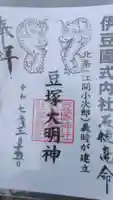 伊豆國式内社
北条(江間小次郎)義時が建立
奉拝
豆塚大明神
令和七年三月五日